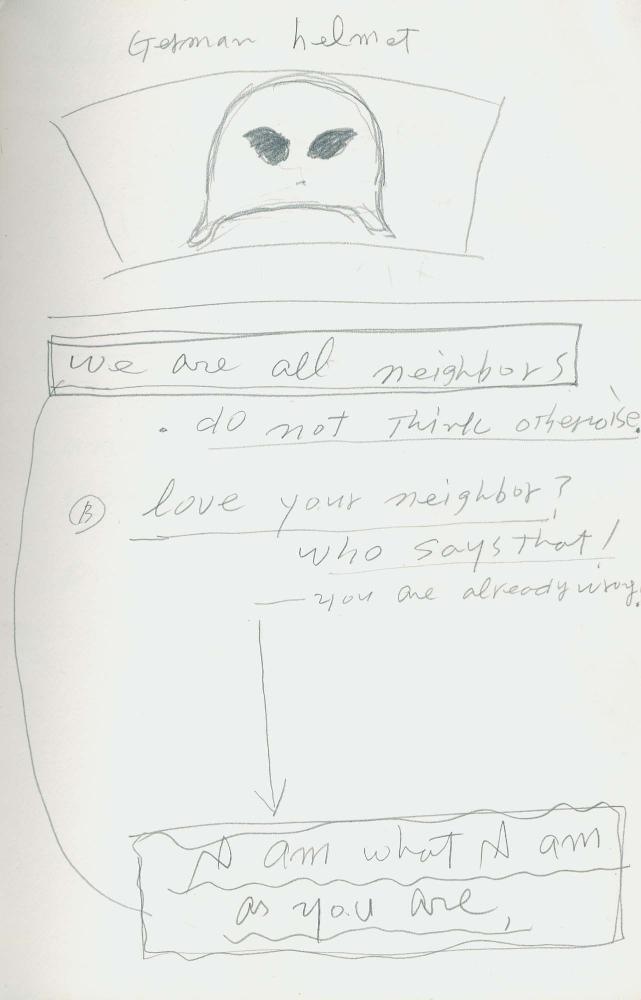 German helmet
we are all neighbors
• do not think otherwise.
Ⓑ love your neighbor?
who says that!
— you are already wrong.
I am what I am
as you are,